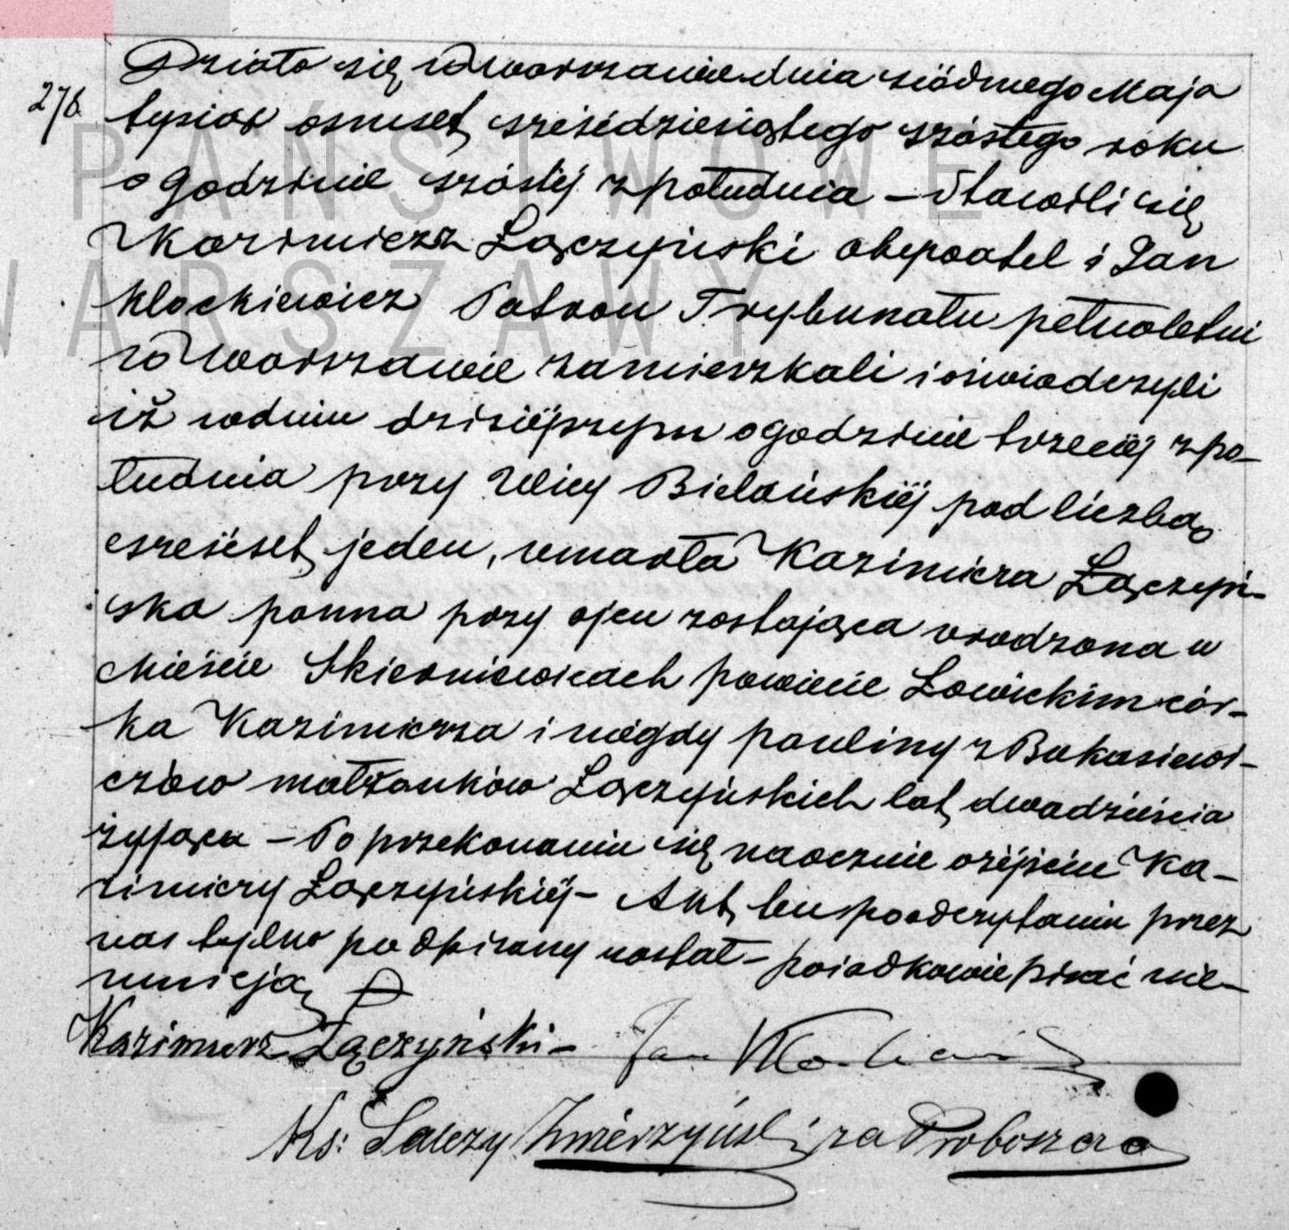 276.
Działo się w Warszawie dnia siódmego Maja
tysiąc ośmset sześćdziesiątego szóstego roku
o godzinie szóstej z południa – Stawili się
Kazimierz Łączyński obywatel i Jan
Klockiewicz Patron Trybunału pełnoletni
w Warszawie zamieszkali i oświadczyli
iż w dniu dzisiejszym o godzinie trzeciéj z po-
łudnia przy Ulicy Bielańskiéj pod liczbą
sześćset jeden, umarła Kazimiera Łączyń-
ska panna przy ojcu zostająca urodzona w
Mieście Skierniewicach powiecie Łowickim cór-
ka Kazimierza i niegdy Pauliny z Bukasiewi-
czów małżonków Łączyńskich lat dwadzieścia
żyjąca – Po przekonaniu się naocznie o zejściu Ka-
zimiery Łączyńskiéj – Akt ten po odczytaniu przez
nas tylko podpisany został – poiadkowie pisać nie-
umieją
Kazimierz Łączyński – Jan
Ks: Zmierzyński za Proboszcza
PAŃSTWOWE
WARSZAWY